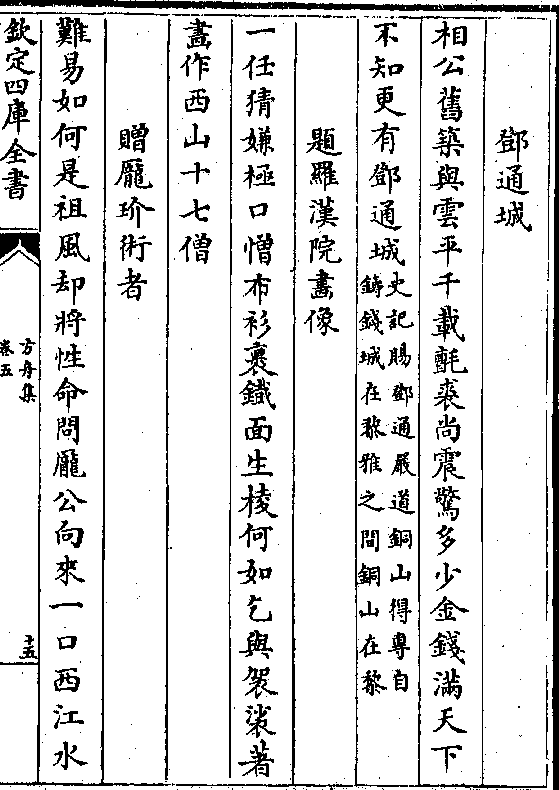 鄧通城
相公舊築與雲平千載氈裘尚震驚多少金錢滿天下
不知更有鄧通城史記賜鄧通嚴道銅山得專自
鑄錢城在黎雅之間銅山在黎
題羅漢院畫像
一任猜嫌極口憎布衫裹鐵面生棱何如乞與袈裟著
畫作西山十七僧
贈龎玠術者
難易如何是祖風却將性命問龎公向來一口西江水
欽定四庫全書
方舟集
卷五
十五